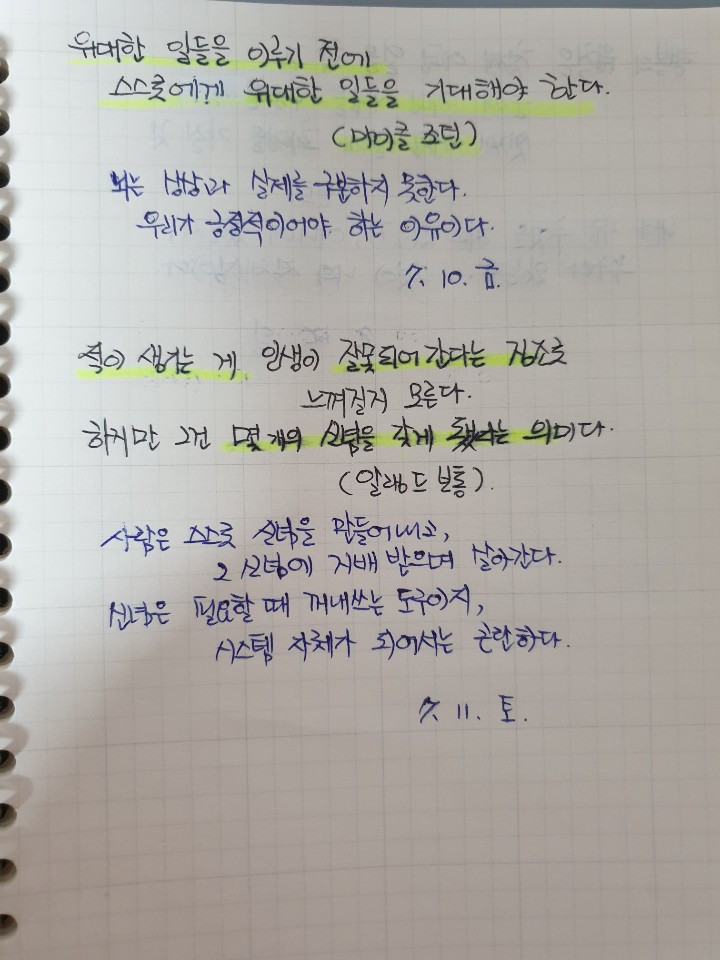 위대한 일들을 이루기 전에
스스로에게 위대한 일들을 기대해야 한다.
(마이클 조던)
뇌는 상상과 실제를 구분하지 못한다.
우리가 긍정적이어야 하는 이유이다.
7. 10. 금.
적이 생기는 게 인생이 잘못되어 간다는 징조로
느껴질지 모른다.
하지만 그건 몇 개의 신념을 갖게 됐다는 의미다.
(알랭 드 보통).
사람은 스스로 신념을 만들어내고,
그 신념에 지배 받으며 살아간다.
신념은 필요할 때 꺼내쓰는 도구이지,
시스템 자체가 되어서는 곤란하다.
7. 11. 토.